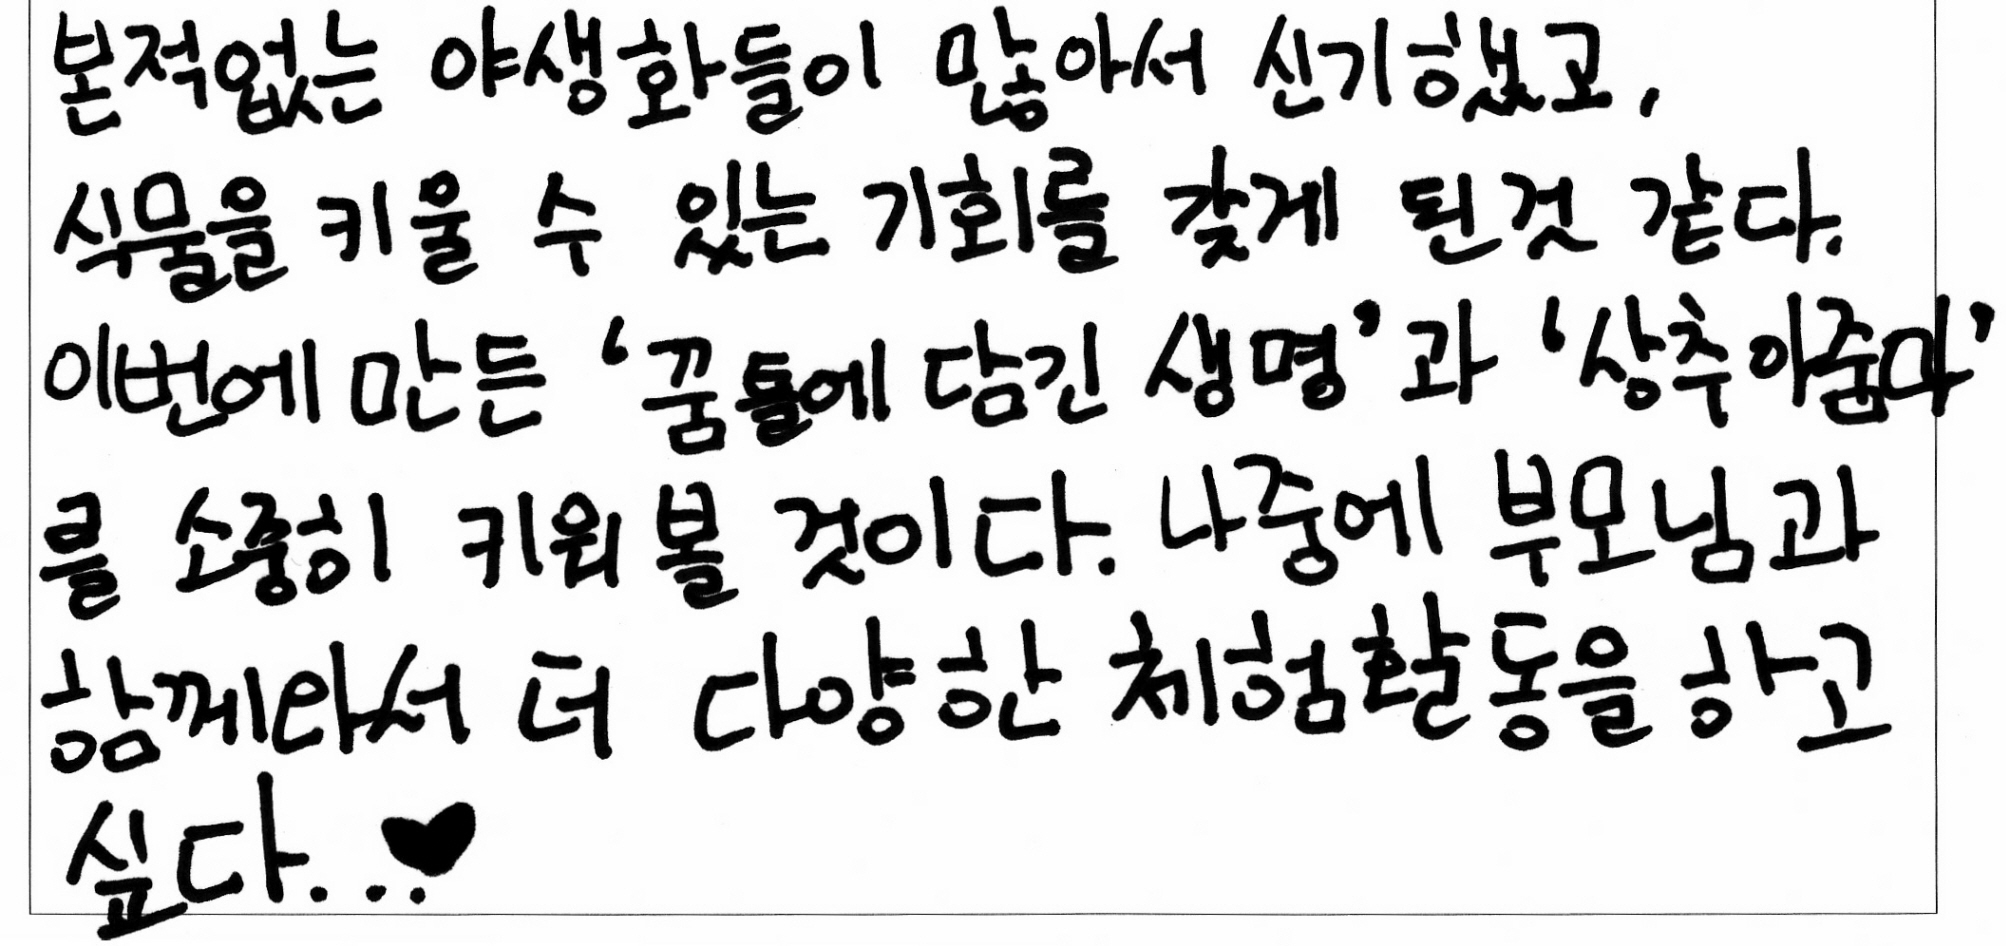 본적없는 야생화들이 많아서 신기했고,
식물을 키울 수 있는 기회를 갖게 된것 같다.
이번에 만든 ‘꿈틀에 담긴 생명’과 ‘상추아줌마’
를 소중히 키워볼 것이다. 나중에 부모님과
함께와서 더 다양한 체험활동을 하고
싶다...♥